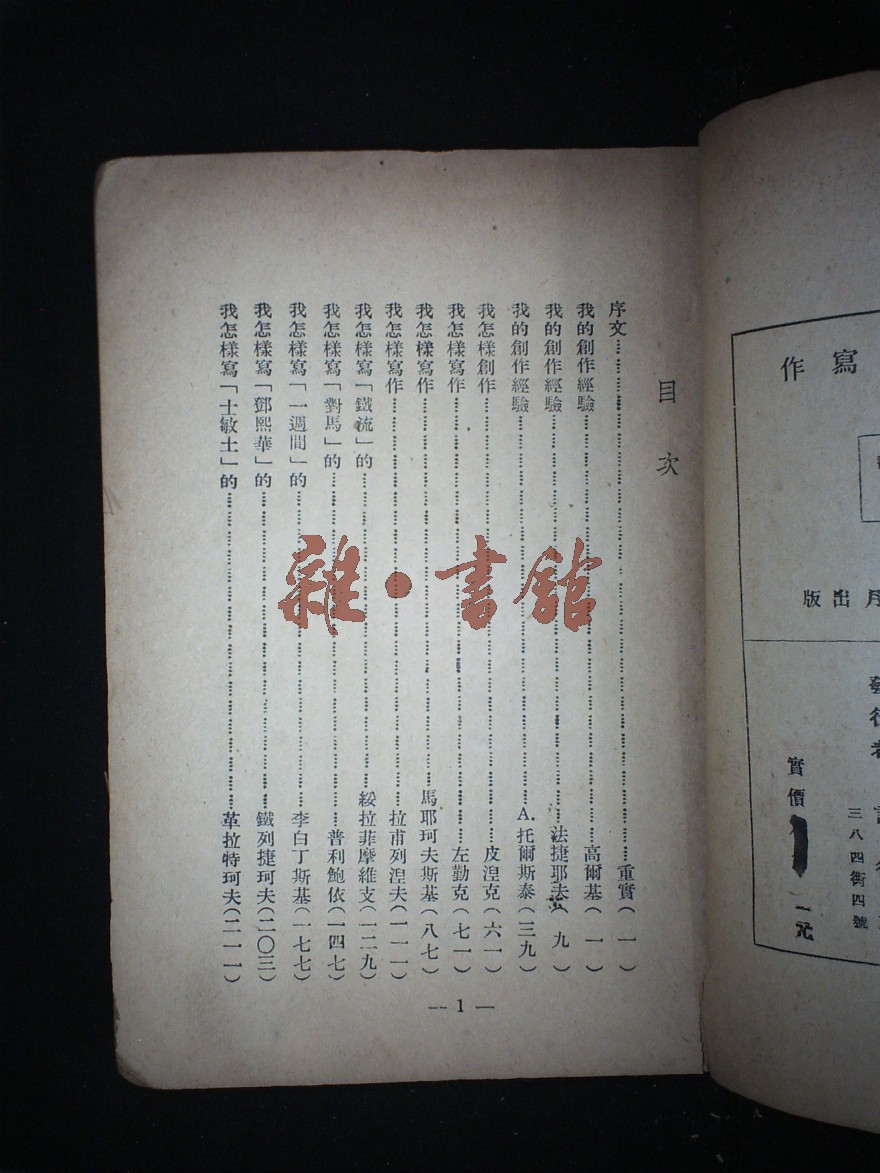 目次
序文……重實(一)
我的創作經驗……高爾基(一)
我的創作經驗……法捷耶夫(九)
我的創作經驗……A.托爾斯泰(三九)
我怎样創作……皮涅克(六一)
我怎樣寫作……左勤克(七一)
我怎樣寫作……馬耶珂夫斯基(八七)
我怎樣寫作……拉甫列涅夫(一一一)
我怎樣寫「鐵流」的……綏拉菲摩維支(一二九)
我怎樣寫「對馬」的……普利鮑依(一四七)
我怎樣寫「一週間」的……李白丁斯基(一七七)
我怎樣寫「鄧熙華」的……鐵列捷珂夫(二〇三)
我怎樣寫「士敏土」的……革拉特珂夫(二一一)
— 1 —
雜·書館
寫作
月出版
發行者
三八四街四號
實價 一元